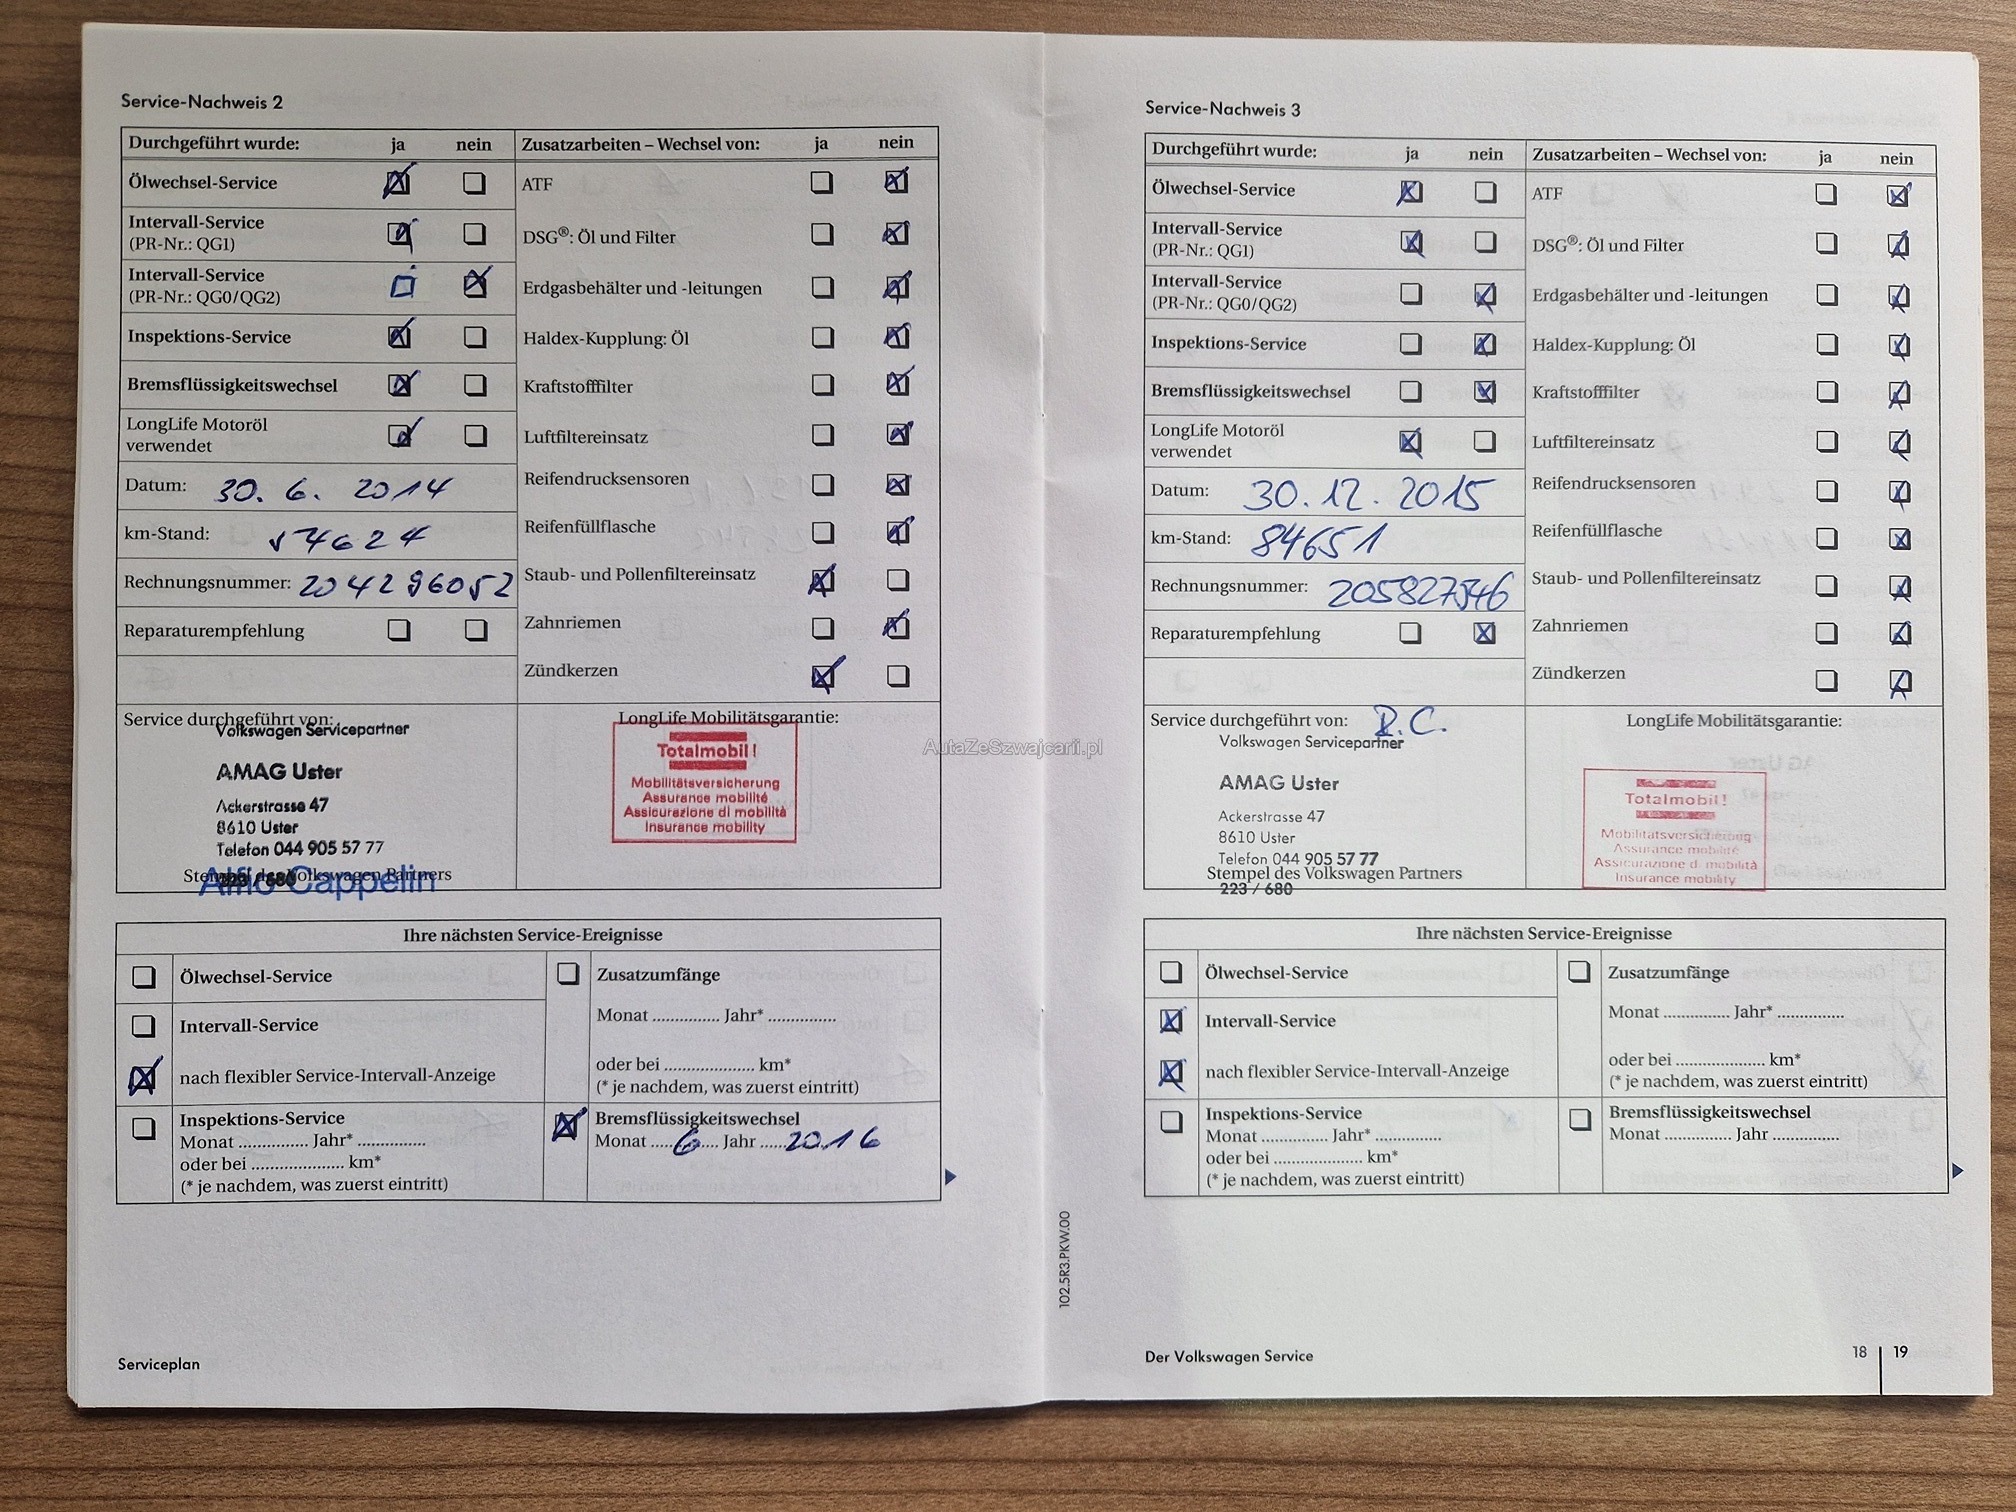 Service-Nachweis 2
Durchgeführt wurde: ja nein
Ölwechsel-Service
Intervall-Service
(PR-Nr.: QG1)
Intervall-Service
(PR-Nr.: QG0/QG2)
Inspektions-Service
Bremsflüssigkeitswechsel
LongLife Motoröl
verwendet
Datum: 30. 6. 2014
km-Stand: 54624
Rechnungsnummer: 204296052
Reparaturempfehlung
Zusatzarbeiten – Wechsel von: ja nein
ATF
DSG®: Öl und Filter
Erdgasbehälter und -leitungen
Haldex-Kupplung: Öl
Kraftstofffilter
Luftfiltereinsatz
Reifendrucksensoren
Reifenfüllflasche
Staub- und Pollenfiltereinsatz
Zahnriemen
Zündkerzen
Service durchgeführt von:
Volkswagen Servicepartner
AMAG Uster
Ackerstrasse 47
8610 Uster
Telefon 044 905 57 77
Stempel des Volkswagen Partners
223 / 680
Alfio Cappelin
LongLife Mobilitätsgarantie:
Totalmobil!
Mobilitätsversicherung
Assurance mobilité
Assicurazione di mobilità
Insurance mobility
Ihre nächsten Service-Ereignisse
Ölwechsel-Service
Intervall-Service
nach flexibler Service-Intervall-Anzeige
Inspektions-Service
Monat .............. Jahr* ..............
oder bei ................... km*
(* je nachdem, was zuerst eintritt)
Zusatzumfänge
Monat .............. Jahr* ..............
oder bei ................... km*
(* je nachdem, was zuerst eintritt)
Bremsflüssigkeitswechsel
Monat ....6.... Jahr ....2016
Serviceplan
AutaZeSzwajcarii.pl
Service-Nachweis 3
Durchgeführt wurde: ja nein
Ölwechsel-Service
Intervall-Service
(PR-Nr.: QG1)
Intervall-Service
(PR-Nr.: QG0/QG2)
Inspektions-Service
Bremsflüssigkeitswechsel
LongLife Motoröl
verwendet
Datum: 30.12.2015
km-Stand: 84651
Rechnungsnummer: 205827546
Reparaturempfehlung
Zusatzarbeiten – Wechsel von: ja nein
ATF
DSG®: Öl und Filter
Erdgasbehälter und -leitungen
Haldex-Kupplung: Öl
Kraftstofffilter
Luftfiltereinsatz
Reifendrucksensoren
Reifenfüllflasche
Staub- und Pollenfiltereinsatz
Zahnriemen
Zündkerzen
Service durchgeführt von:
Volkswagen Servicepartner
AMAG Uster
Ackerstrasse 47
8610 Uster
Telefon 044 905 57 77
Stempel des Volkswagen Partners
223 / 680
LongLife Mobilitätsgarantie:
Totalmobil!
Mobilitätsversicherung
Assurance mobilité
Assicurazione di mobilità
Insurance mobility
Ihre nächsten Service-Ereignisse
Ölwechsel-Service
Intervall-Service
nach flexibler Service-Intervall-Anzeige
Inspektions-Service
Monat .............. Jahr* ..............
oder bei ................... km*
(* je nachdem, was zuerst eintritt)
Zusatzumfänge
Monat .............. Jahr* ..............
oder bei ................... km*
(* je nachdem, was zuerst eintritt)
Bremsflüssigkeitswechsel
Monat .............. Jahr ..............
102.5R3.PKW.00
Der Volkswagen Service
18 | 19